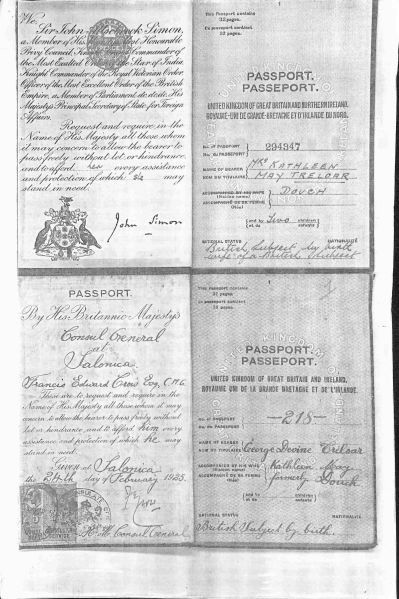 We,
Sir John Simon,
a Member of His Most Honourable
Privy Council, Knight Grand Commander of
the Most Exalted Order of the Star of India,
Knight Commander of the Royal Victorian Order,
Officer of the Most Excellent Order of the British
Empire, a Member of Parliament, etc. etc. etc. His
Majesty's Principal Secretary of State for Foreign
Affairs,
Request and require in the
Name of His Majesty all those whom
it may concern to allow the bearer to
pass freely without let or hindrance,
and to afford her every assistance
and protection of which she may
stand in need.
John Simon
This Passport contains
32 pages.
Ce passeport contient
32 pages.
PASSPORT.
PASSEPORT.
UNITED KINGDOM OF GREAT BRITAIN AND NORTHERN IRELAND.
ROYAUME-UNI DE GRANDE-BRETAGNE ET D'IRLANDE DU NORD.
No. OF PASSPORT
No. DU PASSEPORT 294347
NAME OF BEARER MRS KATHLEEN
NOM DU TITULAIRE MAY TRELOAR
ACCOMPANIED BY HIS WIFE (Née) DOUCH
ACCOMPAGNÉ DE SA FEMME (Née)
(and by Two children)
(et de enfants)
NATIONAL STATUS NATIONALITÉ
British Subject by birth
wife of a British Subject
PASSPORT.
By His Britannic Majesty's
Consul General
at
Salonica.
Francis Edward Crow Esq, C.M.G.
These are to request and require in the
Name of His Majesty all those whom it may
concern to allow the bearer to pass freely without
let or hindrance, and to afford him every
assistance and protection of which he may
stand in need.
Given at Salonica
the 24th day of February 1925.
H.M. Consul General
This Passport contains
32 pages.
Ce passeport contient
32 pages.
PASSPORT.
PASSEPORT.
UNITED KINGDOM OF GREAT BRITAIN AND IRELAND.
ROYAUME UNI DE LA GRANDE BRETAGNE ET DE L'IRLANDE.
No. OF PASSPORT
No. DU PASSEPORT -218-
NAME OF BEARER
NOM DU TITULAIRE George Devine Treloar
ACCOMPANIED BY HIS WIFE (Née) Kathleen May
ACCOMPAGNÉ DE SA FEMME (Née) formerly Douch
(and by children)
(et de enfants)
NATIONAL STATUS NATIONALITÉ
British Subject by birth.